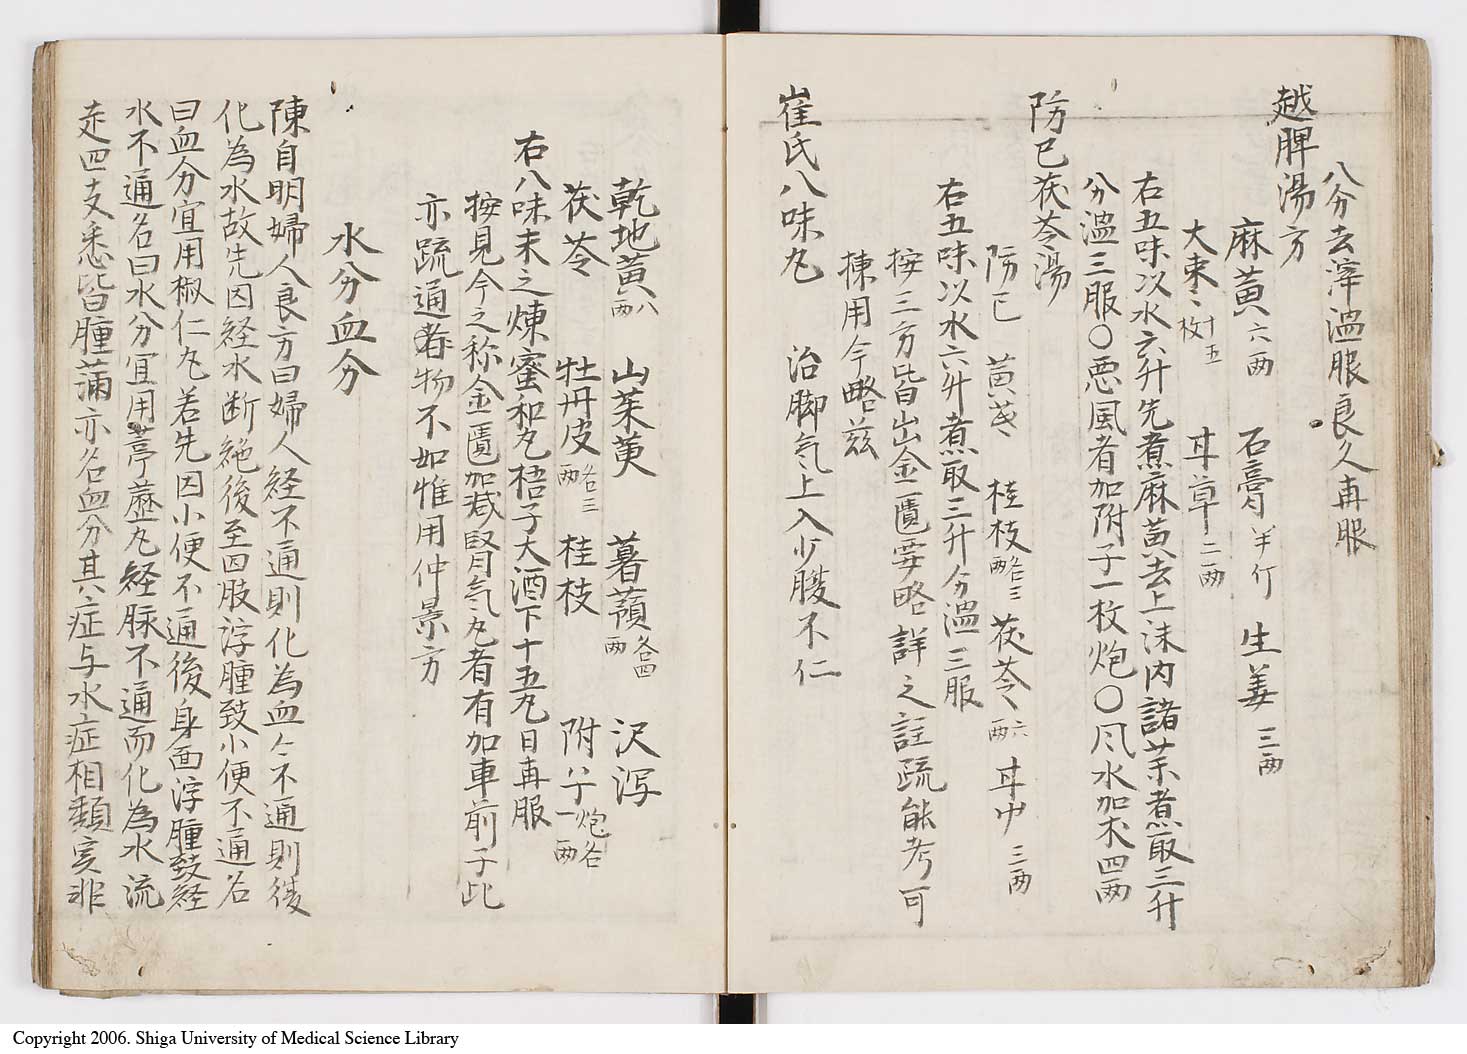 八分去滓温服良久再服
越脾湯方
麻黄六両 石膏半斤 生姜三両
大棗十五枚 甘草二両
右五味以水六升先煮麻黄去上沫内諸薬煮取三升
分温三服〇悪風者加附子一枚炮〇风水加朮四両
防已茯苓湯
防已 黄芪 桂枝各三両 茯苓六両 甘草三両
右五味以水六升煮取三升分温三服
按三方皆出金匱要略詳之註疏能考可
揀用今略茲
崔氏八味丸 治脚気上入少腹不仁
乾地黄八両 山茱萸 薯蕷各四両 沢泻
茯苓 牡丹皮各三両 桂枝 附子炮各一両
右八味末之煉蜜和丸梧子大酒下十五丸日再服
按見今之称金匱加减腎気丸者有加車前子此
亦疏通者物不如惟用仲景方
水分血分
陳自明婦人良方曰婦人経不通則化為血々不通則後
化為水故先因経水断絶後至四肢浮腫致小便不通名
曰血分宜用椒仁丸若先因小便不通後身面浮腫致経
水不通名曰水分宜用葶藶丸経脉不通而化為水流
走四支悉皆腫満亦名血分其症与水症相類実非